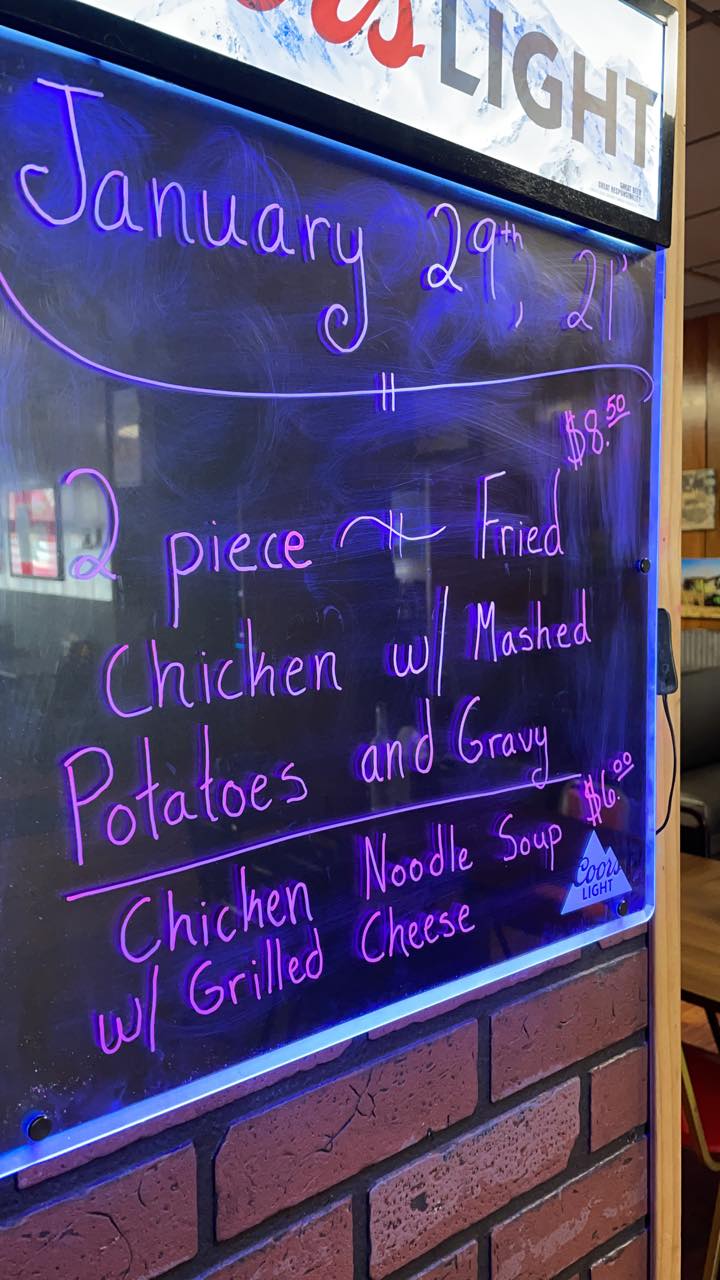 ors LIGHT
GREAT BEER
GREAT RESPONSIBILITY
January 29th, 21'
$8.50
2 piece Fried
Chicken w/ Mashed
Potatoes and Gravy
$6.00
Chicken Noodle Soup
w/ Grilled Cheese
Coors
LIGHT